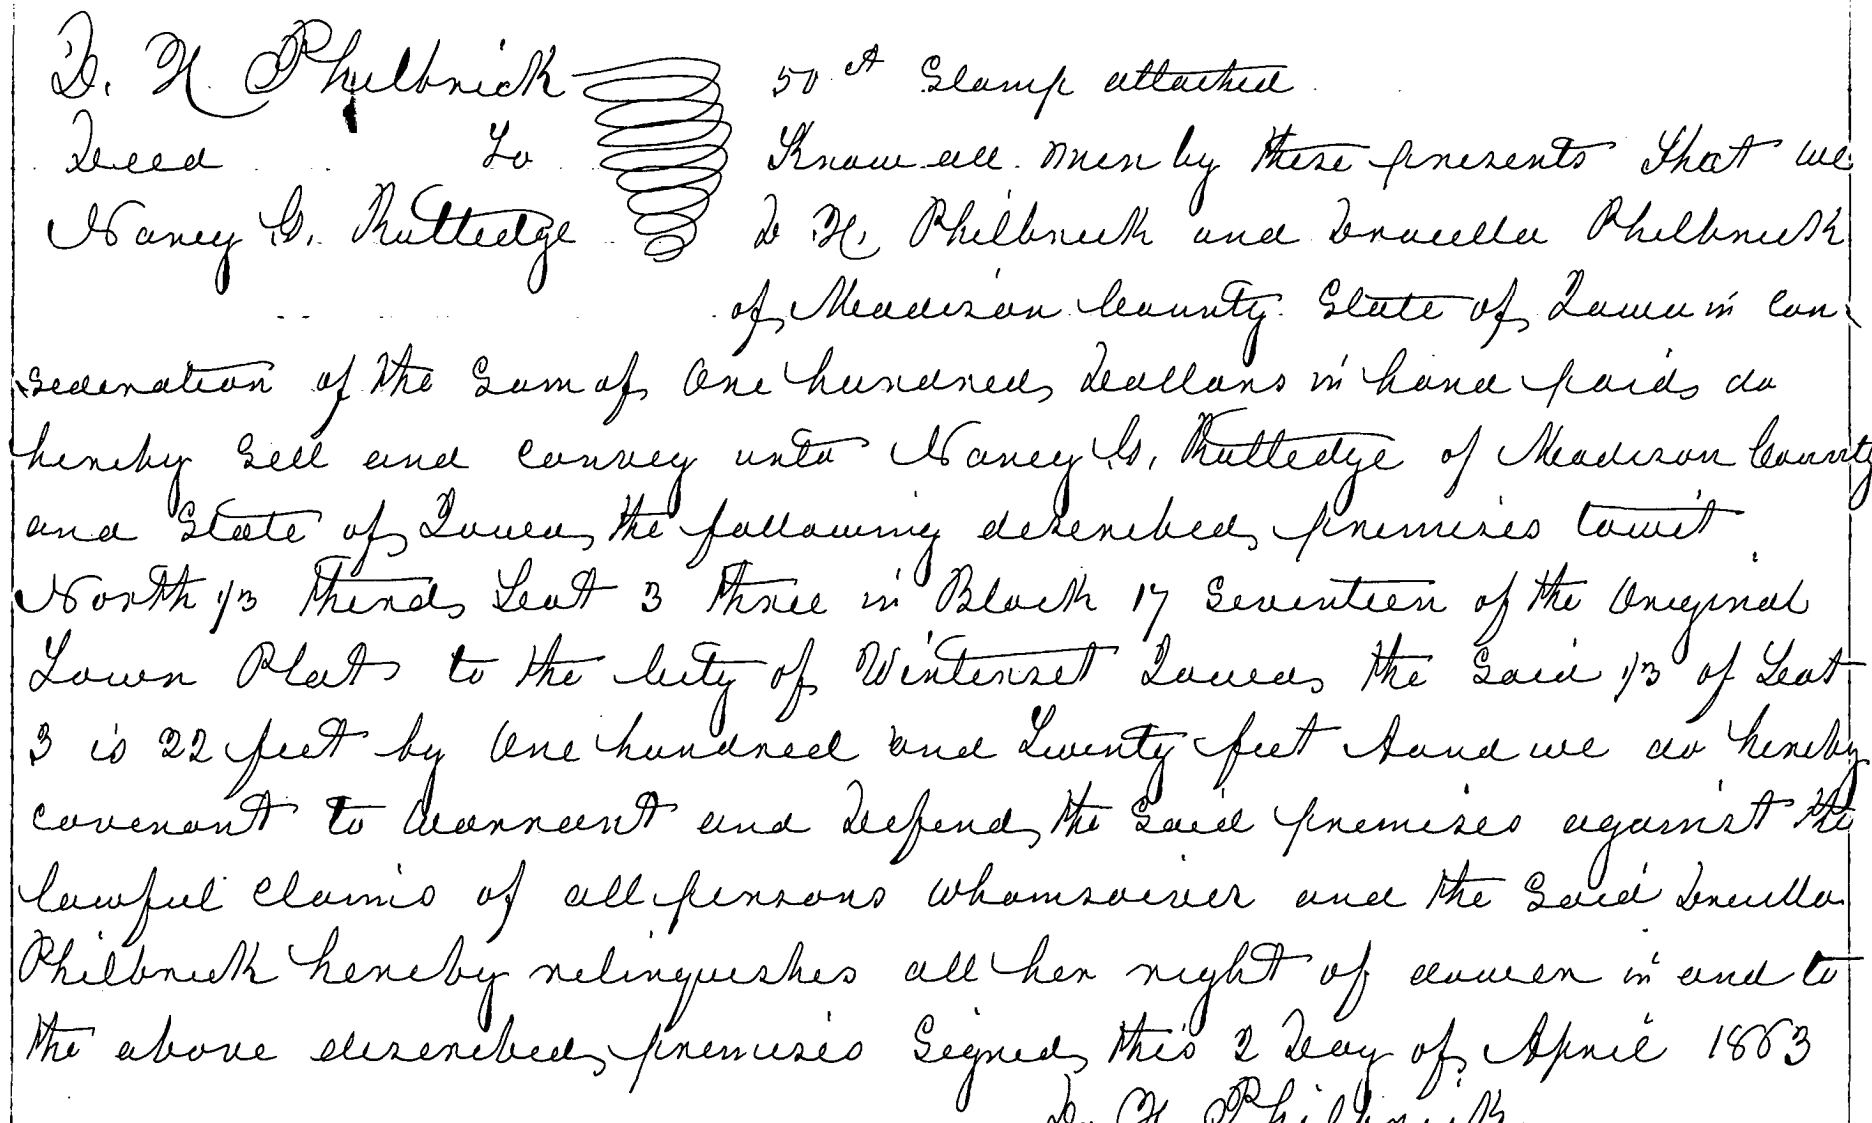 D. H. Philbrick 50 ct Stamp attached
Deed To Know all men by these presents That we
Nancy G. Ruttedge D H. Philbrick and Drucilla Philbrick
of Madison County State of Iowa in con-
sideration of the Sum of One hundred Dollars in hand paid do
hereby Sell and convey unto Nancy G. Ruttedge of Madison County
and State of Iowa the following described premises towit
North 1/3 third Lot 3 three in Block 17 Seventeen of the Original
Town Plat to the City of Winterset Iowa the Said 1/3 of Lot
3 is 22 feet by One hundred and Twenty feet And we do hereby
covenant to Warrant and Defend the Said premises against the
lawful claims of all persons whomsoever and the Said Drucilla
Philbrick hereby relinquishes all her right of dower in and to
the above described premises Signed this 2 Day of April 1863
D. H. Philbrick